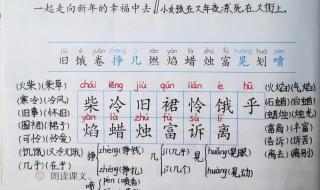 一起走向新年的幸福中去∥小女孩在大年夜冻死在大街上。
jiù è juǎn zhēng jǐ rán yàn là zhú fù huǎng huá pēn
旧 饿 卷 挣 几 燃 焰 蜡 烛 富 晃 划 喷
(火柴)(柴草) chái lěng jiù qún lián è hū (火焰)(气焰)
(寒冷)(冷风) 柴 冷 旧 裙 怜 饿 乎 (石蜡)(白蜡)
(旧事)(怀旧) yàn là zhú fù sù lí (蜡烛)(烛光)
(围裙)(裙子) 焰 蜡 烛 富 诉 离 (富商)(丰富)
(可怜)(怜爱) (告诉)(诉苦)
(饥饿)(又冷又饿) 挣 zhèng(挣钱) 几 jǐ(几个) 晃 huǎng(晃眼) (离去)(离别)
(几乎)(在乎) zhēng(挣扎) jī(几乎) huàng(晃动)
朗读课文。 喷 pēn(喷嚏)